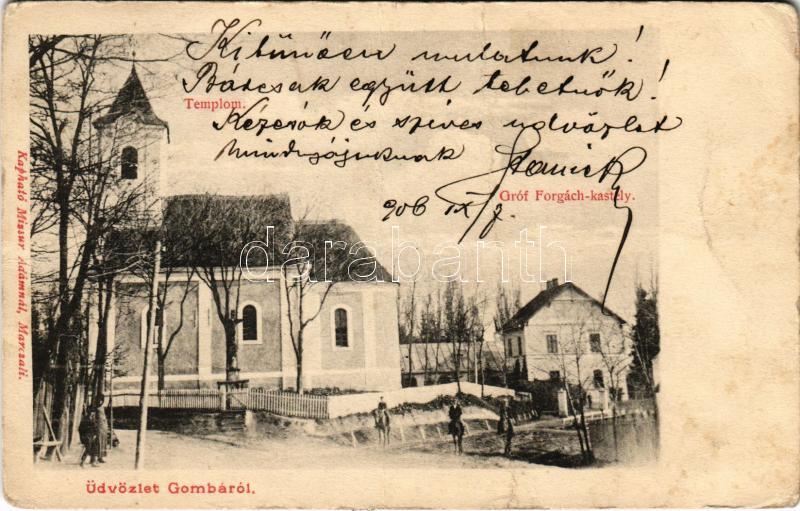 Kitünően mulatunk!
Bátcsak együtt lehetnők!
Templom.
Kézcsók és szives üdvözlet
mindnyájuknak
906 IX/
Gróf Forgách-kastély.
Kapható Missur Ádámnál, Marczali.
darabanth
Üdvözlet Gombáról.